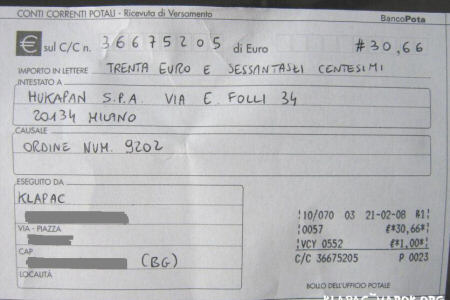 CONTI CORRENTI POTALI - Ricevuta di Versamento
BancoPota
€ sul C/C n. 36675205 di Euro #30,66
IMPORTO IN LETTERE TRENTA EURO E SESSANTASEI CENTESIMI
INTESTATO A
MUKAPAN S.P.A. VIA E. FOLLI 34
20134 MILANO
CAUSALE
ORDINE NUM. 9202
ESEGUITO DA
KLAPAC
VIA - PIAZZA
CAP
(BG)
LOCALITÀ
10/070 03 21-02-08 R1
0057 €*30,66*
VCY 0552 €*1,00*
C/C 36675205 P 0023
BOLLO DELL'UFFICIO POTALE